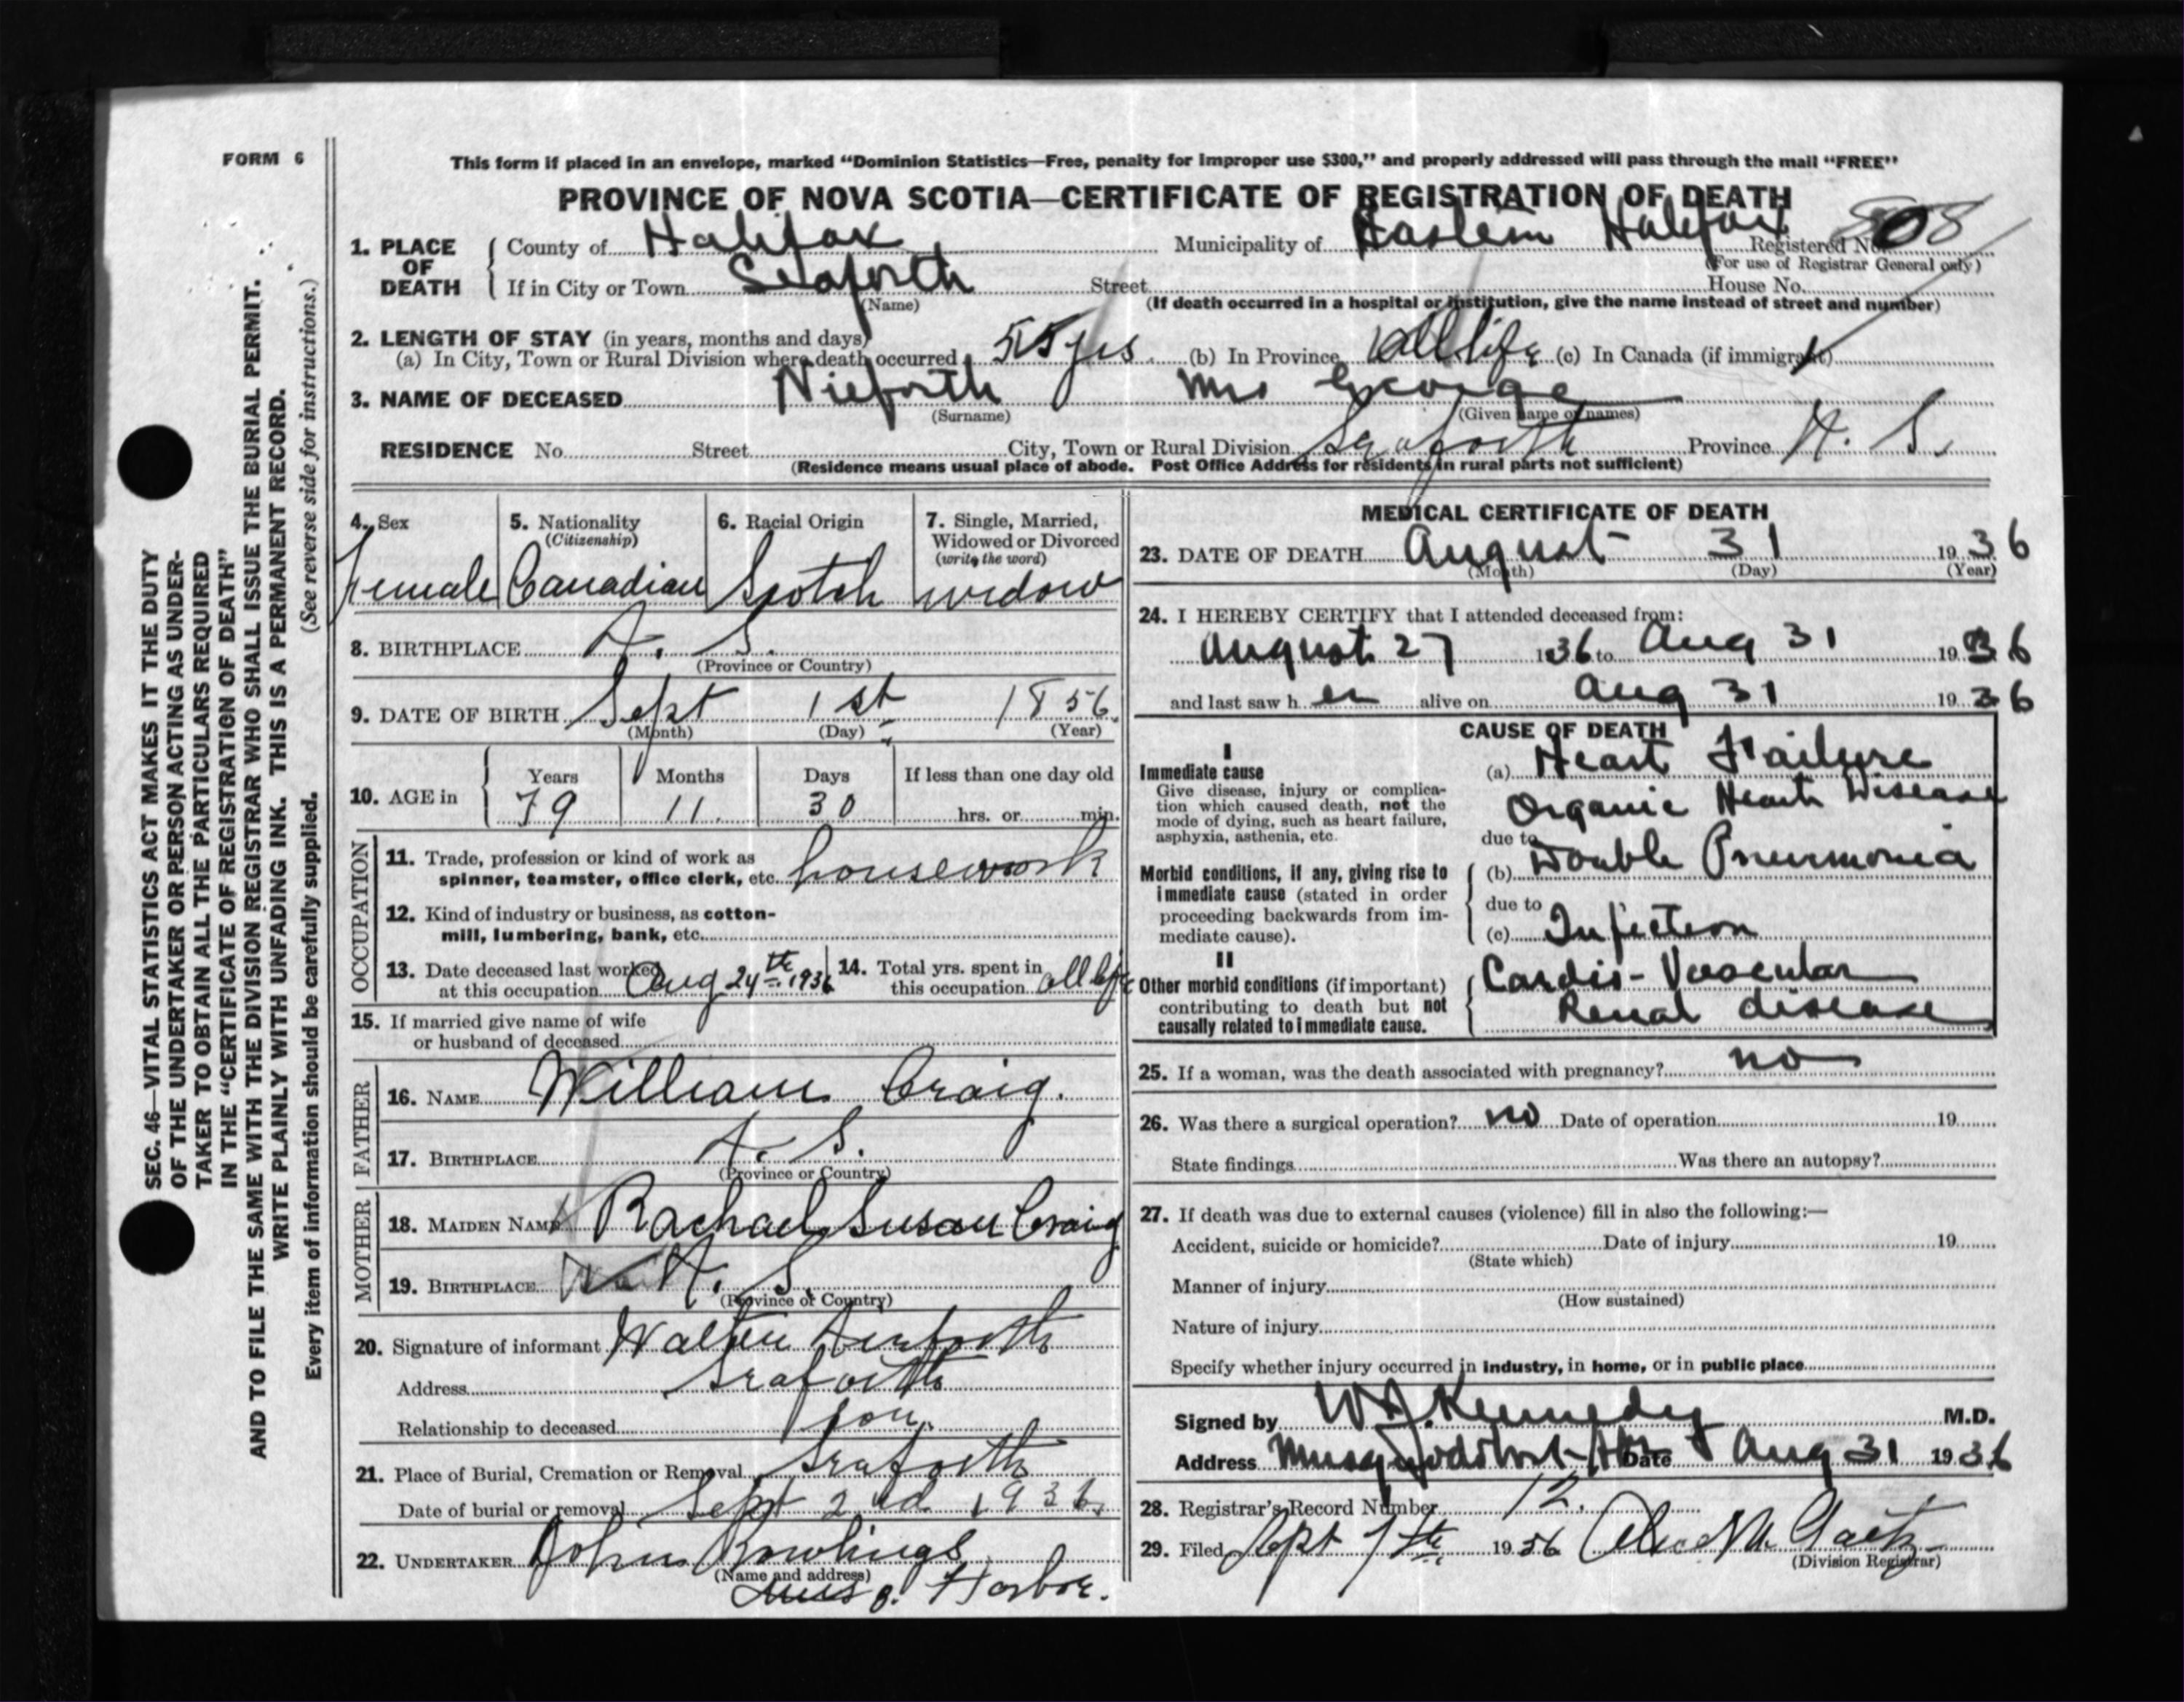 FORM 6
This form if placed in an envelope, marked "Dominion Statistics—Free, penalty for improper use $300," and properly addressed will pass through the mail "FREE"
PROVINCE OF NOVA SCOTIA—CERTIFICATE OF REGISTRATION OF DEATH
1. PLACE OF DEATH County of Halifax Municipality of Eastern Halifax Registered No. 808
(For use of Registrar General only)
If in City or Town Seaforth Street House No.
(Name) (If death occurred in a hospital or institution, give the name instead of street and number)
2. LENGTH OF STAY (in years, months and days)
(a) In City, Town or Rural Division where death occurred 55 yrs. (b) In Province all life (c) In Canada (if immigrant)
3. NAME OF DECEASED Nieforth Mrs George
(Surname) (Given name or names)
RESIDENCE No. Street City, Town or Rural Division Seaforth Province N. S.
(Residence means usual place of abode. Post Office Address for residents in rural parts not sufficient)
4. Sex 5. Nationality 6. Racial Origin 7. Single, Married,
(Citizenship) Widowed or Divorced
(write the word)
Female Canadian Scotch widow
8. BIRTHPLACE N. S.
(Province or Country)
9. DATE OF BIRTH Sept 1st 1856
(Month) (Day) (Year)
10. AGE in Years Months Days If less than one day old
79 11 30 hrs. or min.
OCCUPATION
11. Trade, profession or kind of work as
spinner, teamster, office clerk, etc. housework
12. Kind of industry or business, as cotton-
mill, lumbering, bank, etc.
13. Date deceased last worked
at this occupation Aug 24th 1936
14. Total yrs. spent in
this occupation all life
15. If married give name of wife
or husband of deceased
FATHER
16. NAME William Craig.
17. BIRTHPLACE N. S.
(Province or Country)
MOTHER
18. MAIDEN NAME Rachael Susan Craig
19. BIRTHPLACE N. S.
(Province or Country)
20. Signature of informant Walter Nieforth
Address Seaforth
Relationship to deceased son.
21. Place of Burial, Cremation or Removal Seaforth
Date of burial or removal Sept 2nd 1936
22. UNDERTAKER John Rowlings
(Name and address)
Harbor.
MEDICAL CERTIFICATE OF DEATH
23. DATE OF DEATH August 31 1936
(Month) (Day) (Year)
24. I HEREBY CERTIFY that I attended deceased from:
August 27 1936 to Aug 31 1936
and last saw her alive on Aug 31 1936
CAUSE OF DEATH
I
Immediate cause
Give disease, injury or complica-
tion which caused death, not the
mode of dying, such as heart failure,
asphyxia, asthenia, etc.
(a) Heart Failure
Organic Heart Disease
due to
Morbid conditions, if any, giving rise to
immediate cause (stated in order
proceeding backwards from im-
mediate cause).
(b) Double Pneumonia
due to
(c) Infection
II
Other morbid conditions (if important)
contributing to death but not
causally related to immediate cause.
Cardio-Vascular
Renal disease
25. If a woman, was the death associated with pregnancy? no
26. Was there a surgical operation? no Date of operation 19
State findings Was there an autopsy?
27. If death was due to external causes (violence) fill in also the following:—
Accident, suicide or homicide? Date of injury 19
(State which)
Manner of injury
(How sustained)
Nature of injury
Specify whether injury occurred in industry, in home, or in public place
Signed by W J. Kennedy M.D.
Address Date Aug 31 1936
28. Registrar's Record Number 12.
29. Filed Sept 7th 1936 Gaetz
(Division Registrar)
SEC. 46—VITAL STATISTICS ACT MAKES IT THE DUTY
OF THE UNDERTAKER OR PERSON ACTING AS UNDER-
TAKER TO OBTAIN ALL THE PARTICULARS REQUIRED
IN THE "CERTIFICATE OF REGISTRATION OF DEATH"
AND TO FILE THE SAME WITH THE DIVISION REGISTRAR WHO SHALL ISSUE THE BURIAL PERMIT.
WRITE PLAINLY WITH UNFADING INK. THIS IS A PERMANENT RECORD.
Every item of information should be carefully supplied. (See reverse side for instructions.)